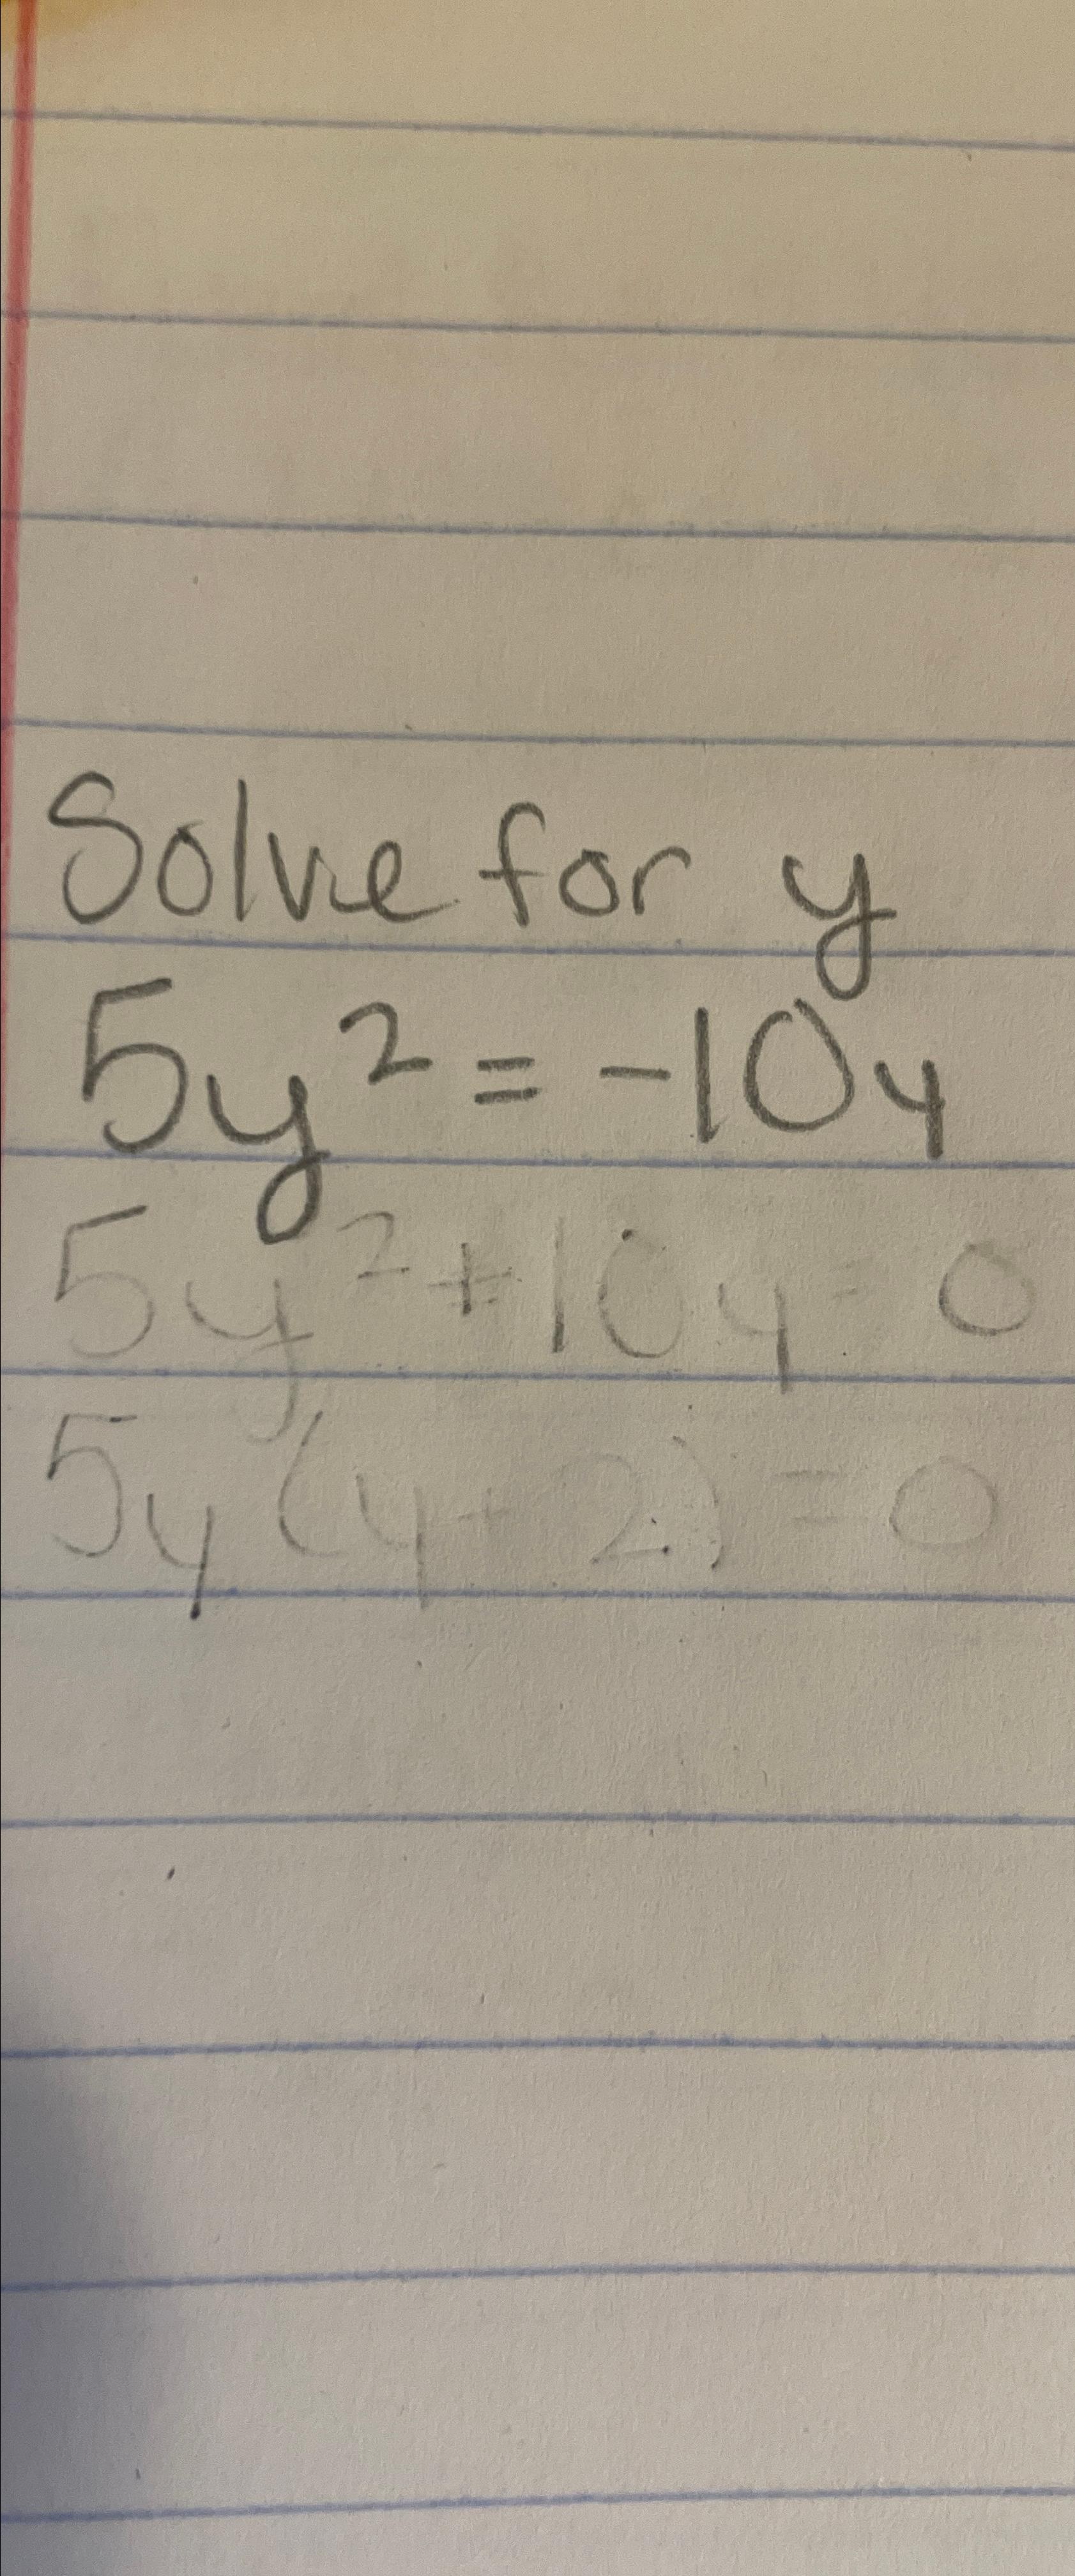 Solve for y
5y² = -10y
5y² + 10y = 0
5y (y + 2) = 0